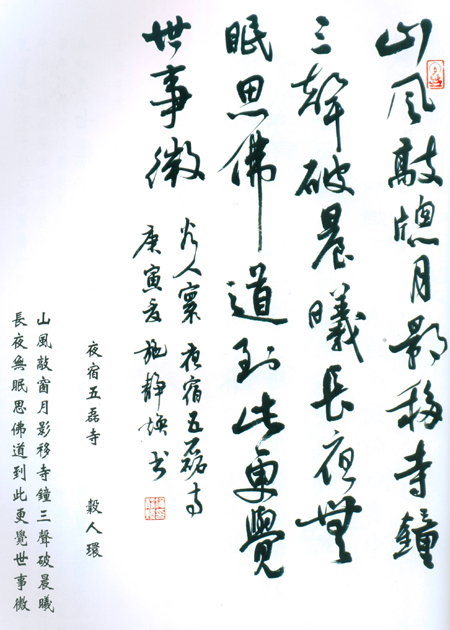 山風敲牕月影移寺鐘
三聲破晨曦長夜無
眠思佛道到此更覺
世事微
谷人寰 夜宿五磊寺
庚寅夏 施靜煥书
夜宿五磊寺 穀人環
山風敲窗月影移寺鐘三聲破晨曦
長夜無眠思佛道到此更覺世事微